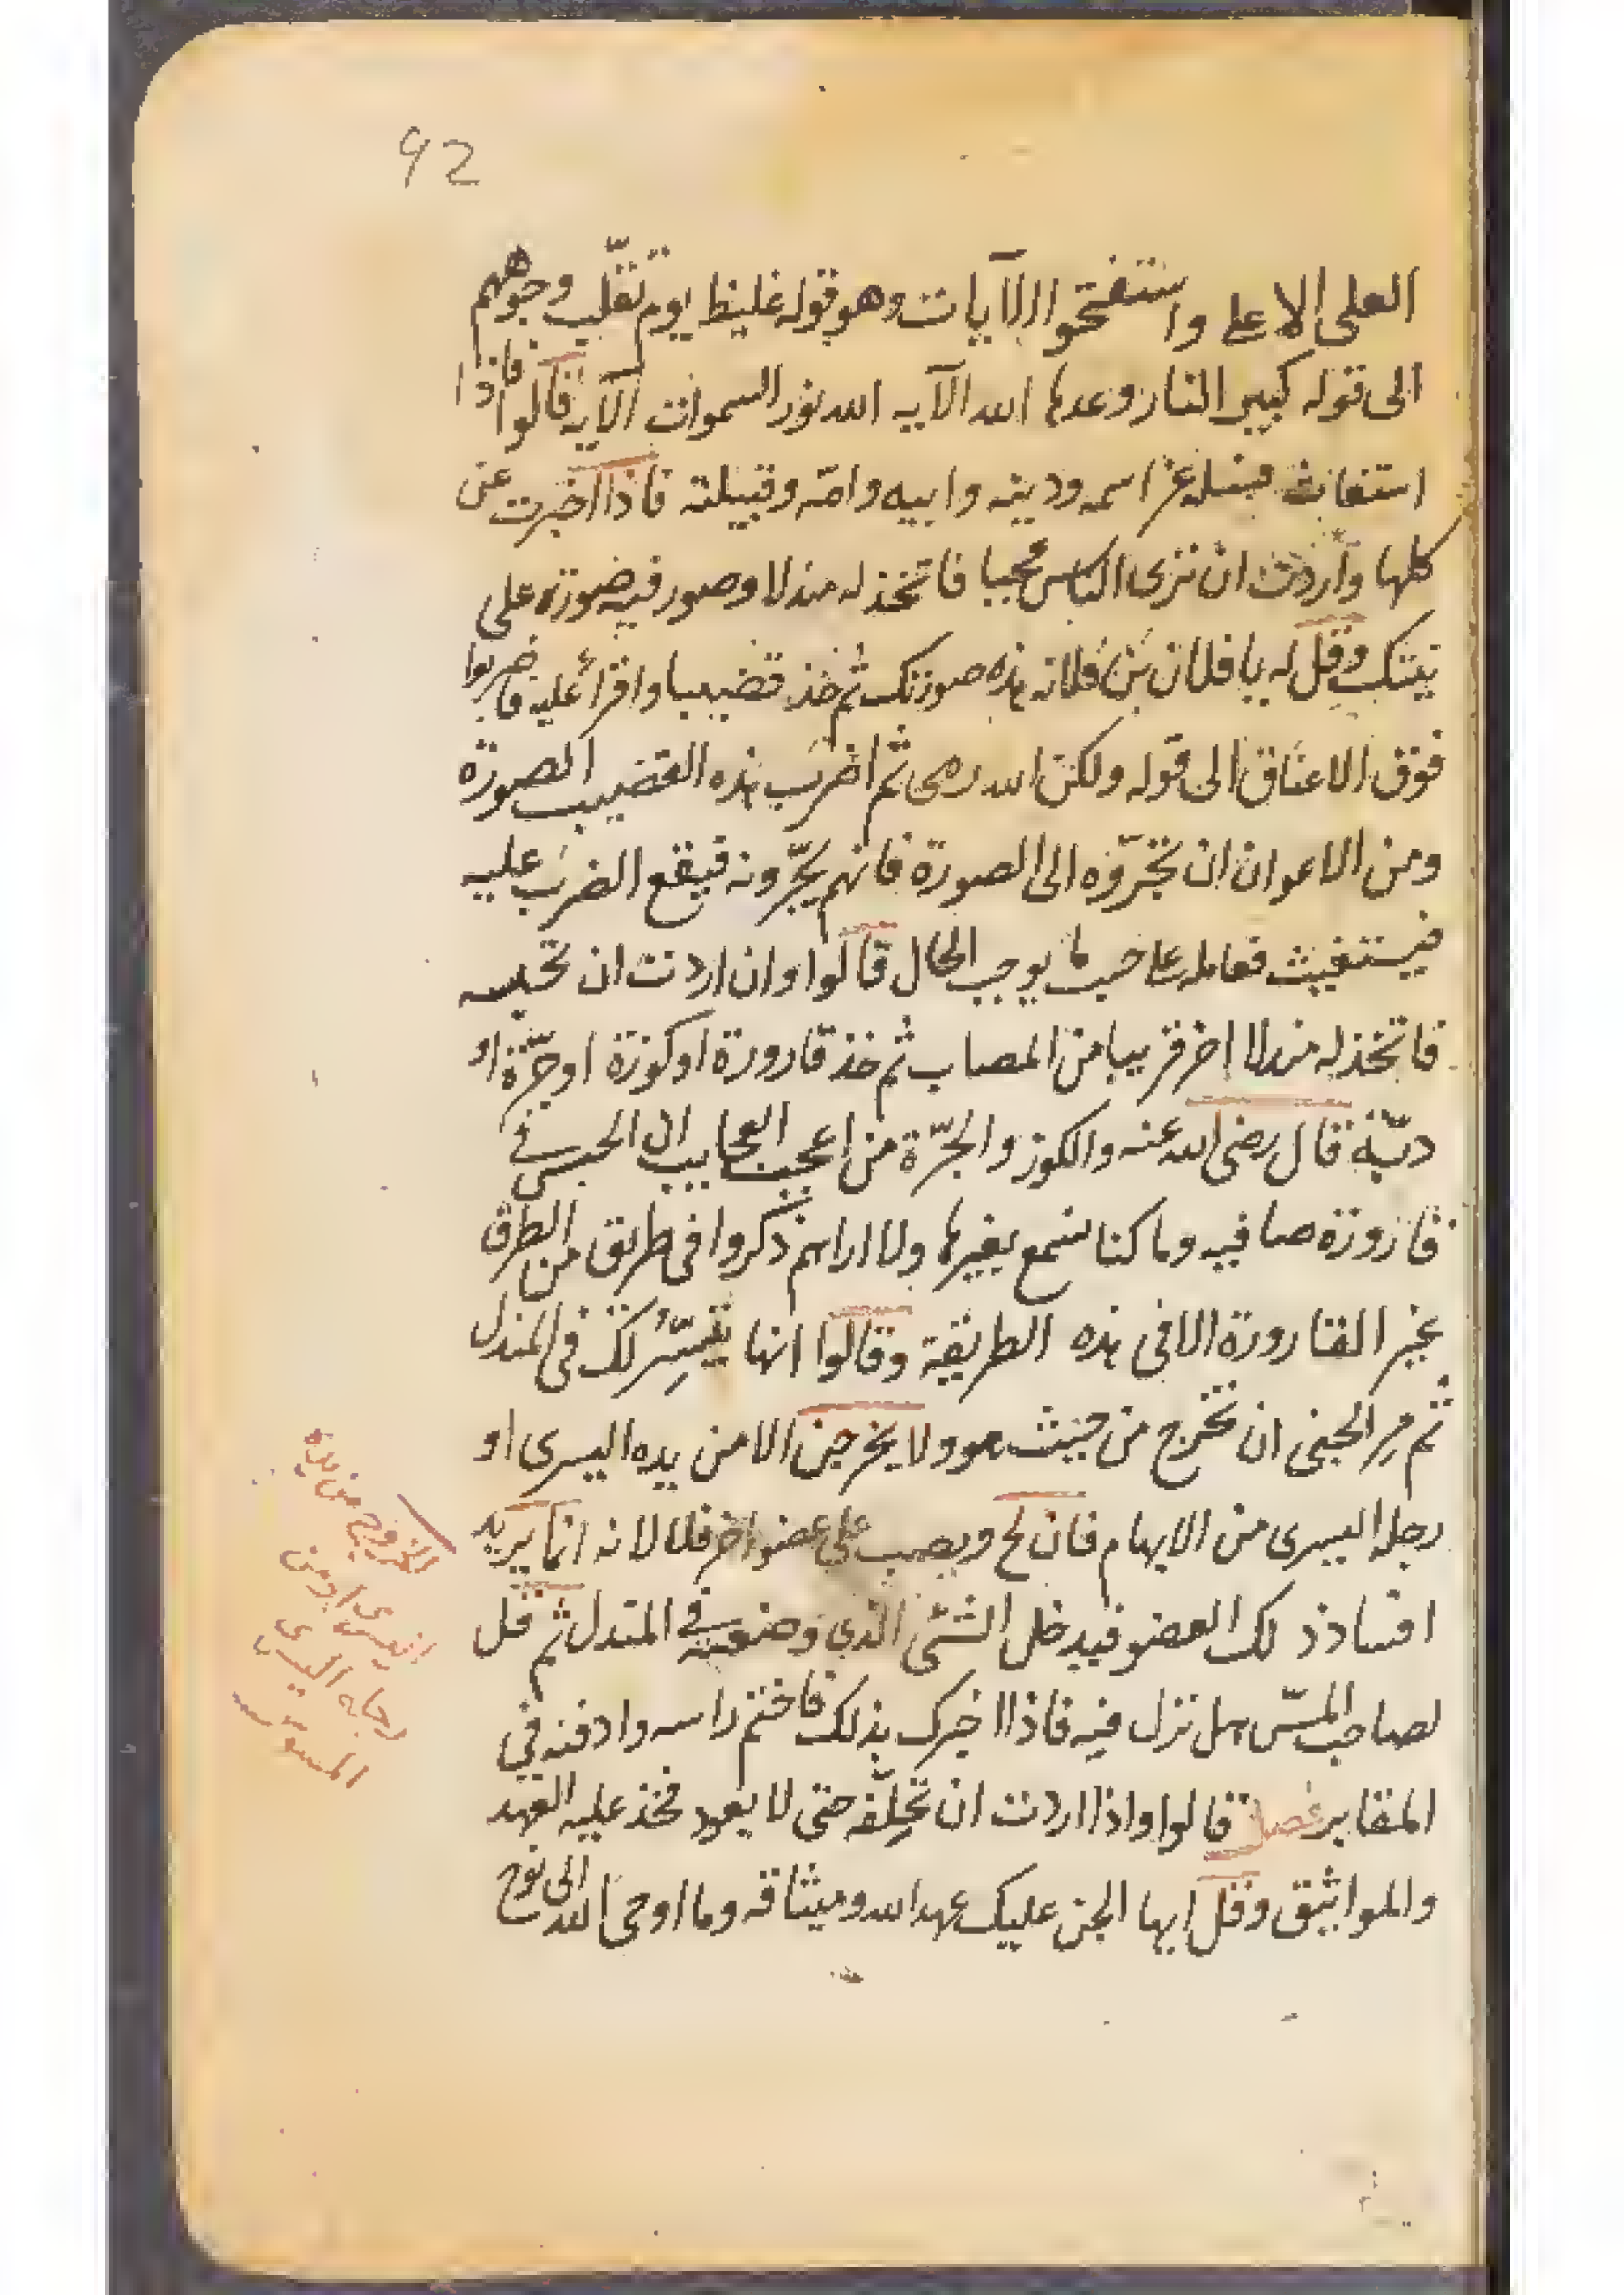 92
العلى الاعلى واستفتحوا الآيات وهو قوله غليظ يوم تقلّب وجوههم
الى قوله كبير النار وعدها الله الآيه الله نور السموات الآيه قالوا فاذا
استغاث فسله عن اسمه ودينه وابيه وامّه وقبيلته فاذا اخبرت عن
كلها واردت ان ترى الناس عجبا فاتخذ له مندلا وصور فيه صورة على
نيتك وقل له يا فلان بن فلانه هذه صورتك ثم خذ قضيبا واقرأ عليه فاضربوا
فوق الاعناق الى قوله ولكن الله رمى ثم اضرب بهذه القضيب الصورة
ومن الاعوان ان تجرّوه الى الصورة فانهم يجرّونه فيقع الضرب عليه
فيستغيث فعامله على حسب ما يوجب الحال قالوا وان اردت ان تحبسه
فاتخذ له مندلا اخر قريبا من المصاب ثم خذ قارورة او كوزة او جرّة او
دبّة قال رضى الله عنه والكوز والجرّة من اعجب العجايب ان الحبس فى
قارورة صافيه وما كنا نسمع بغيرها ولا اراهم ذكروا فى طريق من الطرق
بغير القارورة الا فى هذه الطريقة وقالوا انها يتيسّر لك فى المندل
ثم مر الجنى ان تخرج من حيث هو ولا يخرجن الا من يده اليسرى او
رجله اليسرى من الابهام فان لج ويصب على عضو اخر فلا لانه انما يريد
افساد ذلك العضو فيدخل الشئ الذي وضعته فى المندل ثم قل
لصاحب المسّ هل نزل فيه فاذا اخبرك بذلك فاختم راسه وادفنه فى
المقابر فصل قالوا واذا اردت ان تحلّفه حتى لا يعود فخذ عليه العهد
والمواثيق وقل ايها الجن عليك عهد الله وميثاقه وما اوحى الله الى نوح
الخروج من يده
اليسرى او من
رجله اليسرى